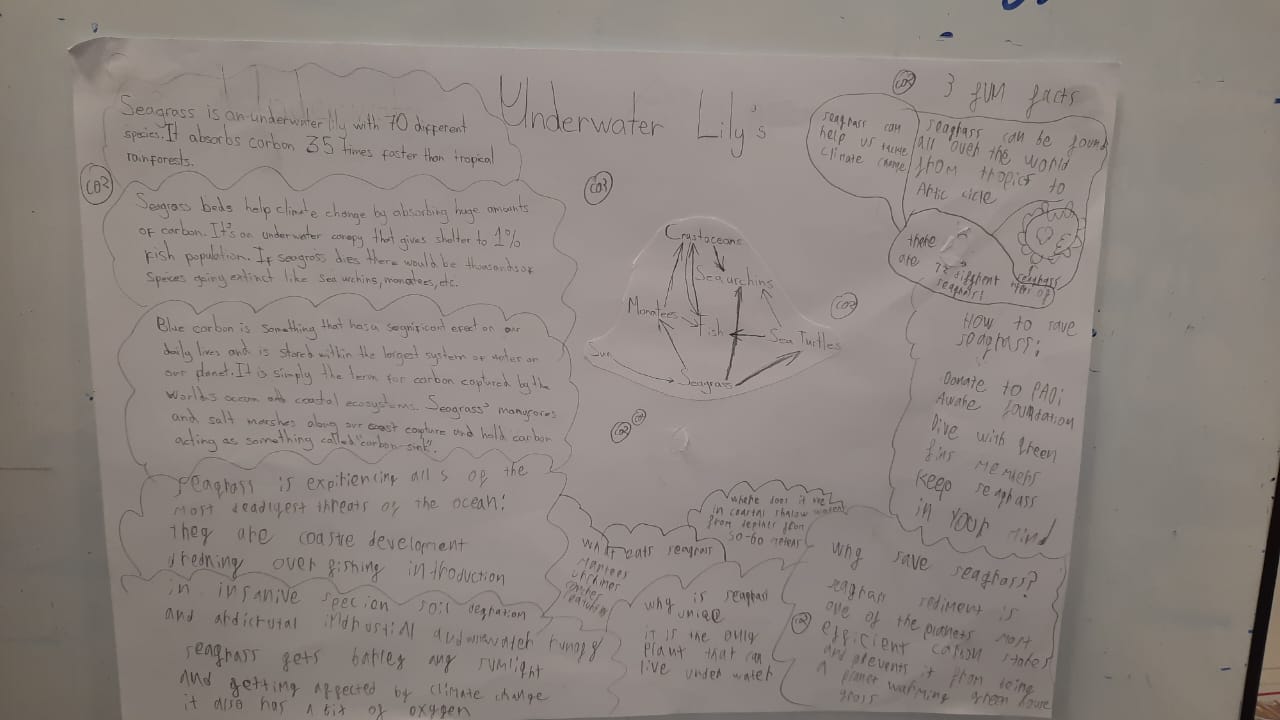 Underwater Lily's
Seagrass is an underwater lily with 70 different
species. It absorbs carbon 35 times faster than tropical
rainforests.
CO2
Seagrass beds help climate change by absorbing huge amounts
of carbon. It's an underwater canopy that gives shelter to 1%
fish population. If seagrass dies there would be thousands of
species going extinct like sea urchins, manatees, etc.
Blue carbon is something that has a significant effect on our
daily lives and is stored within the largest system of water on
our planet. It is simply the term for carbon captured by the
world's ocean and coastal ecosystems. Seagrass' mangroves
and salt marshes along our coast capture and hold carbon
acting as something called "carbon sink".
seagrass is expitiencing all 5 of the
most deadigest threats of the ocean:
they are coastve development
dredning over fishing introduction
in insanive specion soil degration
and
seagrass gets barley any sunlight
and getting affected by climate change
it also has a bit of oxygen
CO2
Crustaceans
Sea urchins
Manatees
Fish
Sea Turtles
Sun
Seagrass
CO2
CO2
CO2
where does it live
in coastal shalow water
from depther from
50-60 meters
what eats seagrass
why is seagrass
unique
it is the only
plant that can
live under water
CO2
3 fUM facts
seagrass can
help us
climate change
seagrass can be found
all over the world
from tropics to
Artic cicle
there
are 72 different
seagrass!
seagrass
HOW to save
seagrass:
Donate to PADi
Aware foundation
Dive with green
fins members
keep seagrass
in YOUR mind
why save seagrass?
seagrass sediment is
one of the planets most
CO2
efficient carbon stores
and prevents it from being
a planet warming green house
gross